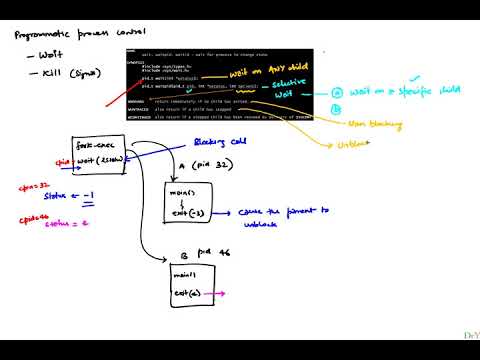 Programmatic process control
- Wait
- Kill (Signal)
wait, waitpid, waitid - wait for process to change state
#include <sys/types.h>
#include <sys/wait.h>
wait on ANY child
selective
wait
a wait on a specific child
b
WNOHANG return immediately if no child has exited.
WUNTRACED also return if a child has stopped
WCONTINUED also return if a stopped child has been resumed by delivery of
Non blocking
Unbloc
fork-exec
cpid = wait(&status)
Blocking call
A (pid 32)
cpid = 32
status ← -1
cpid = 46
status = e
main()
exit(-1)
cause the parent to
unblock
B pid 46
main()
exit(e)
DrY